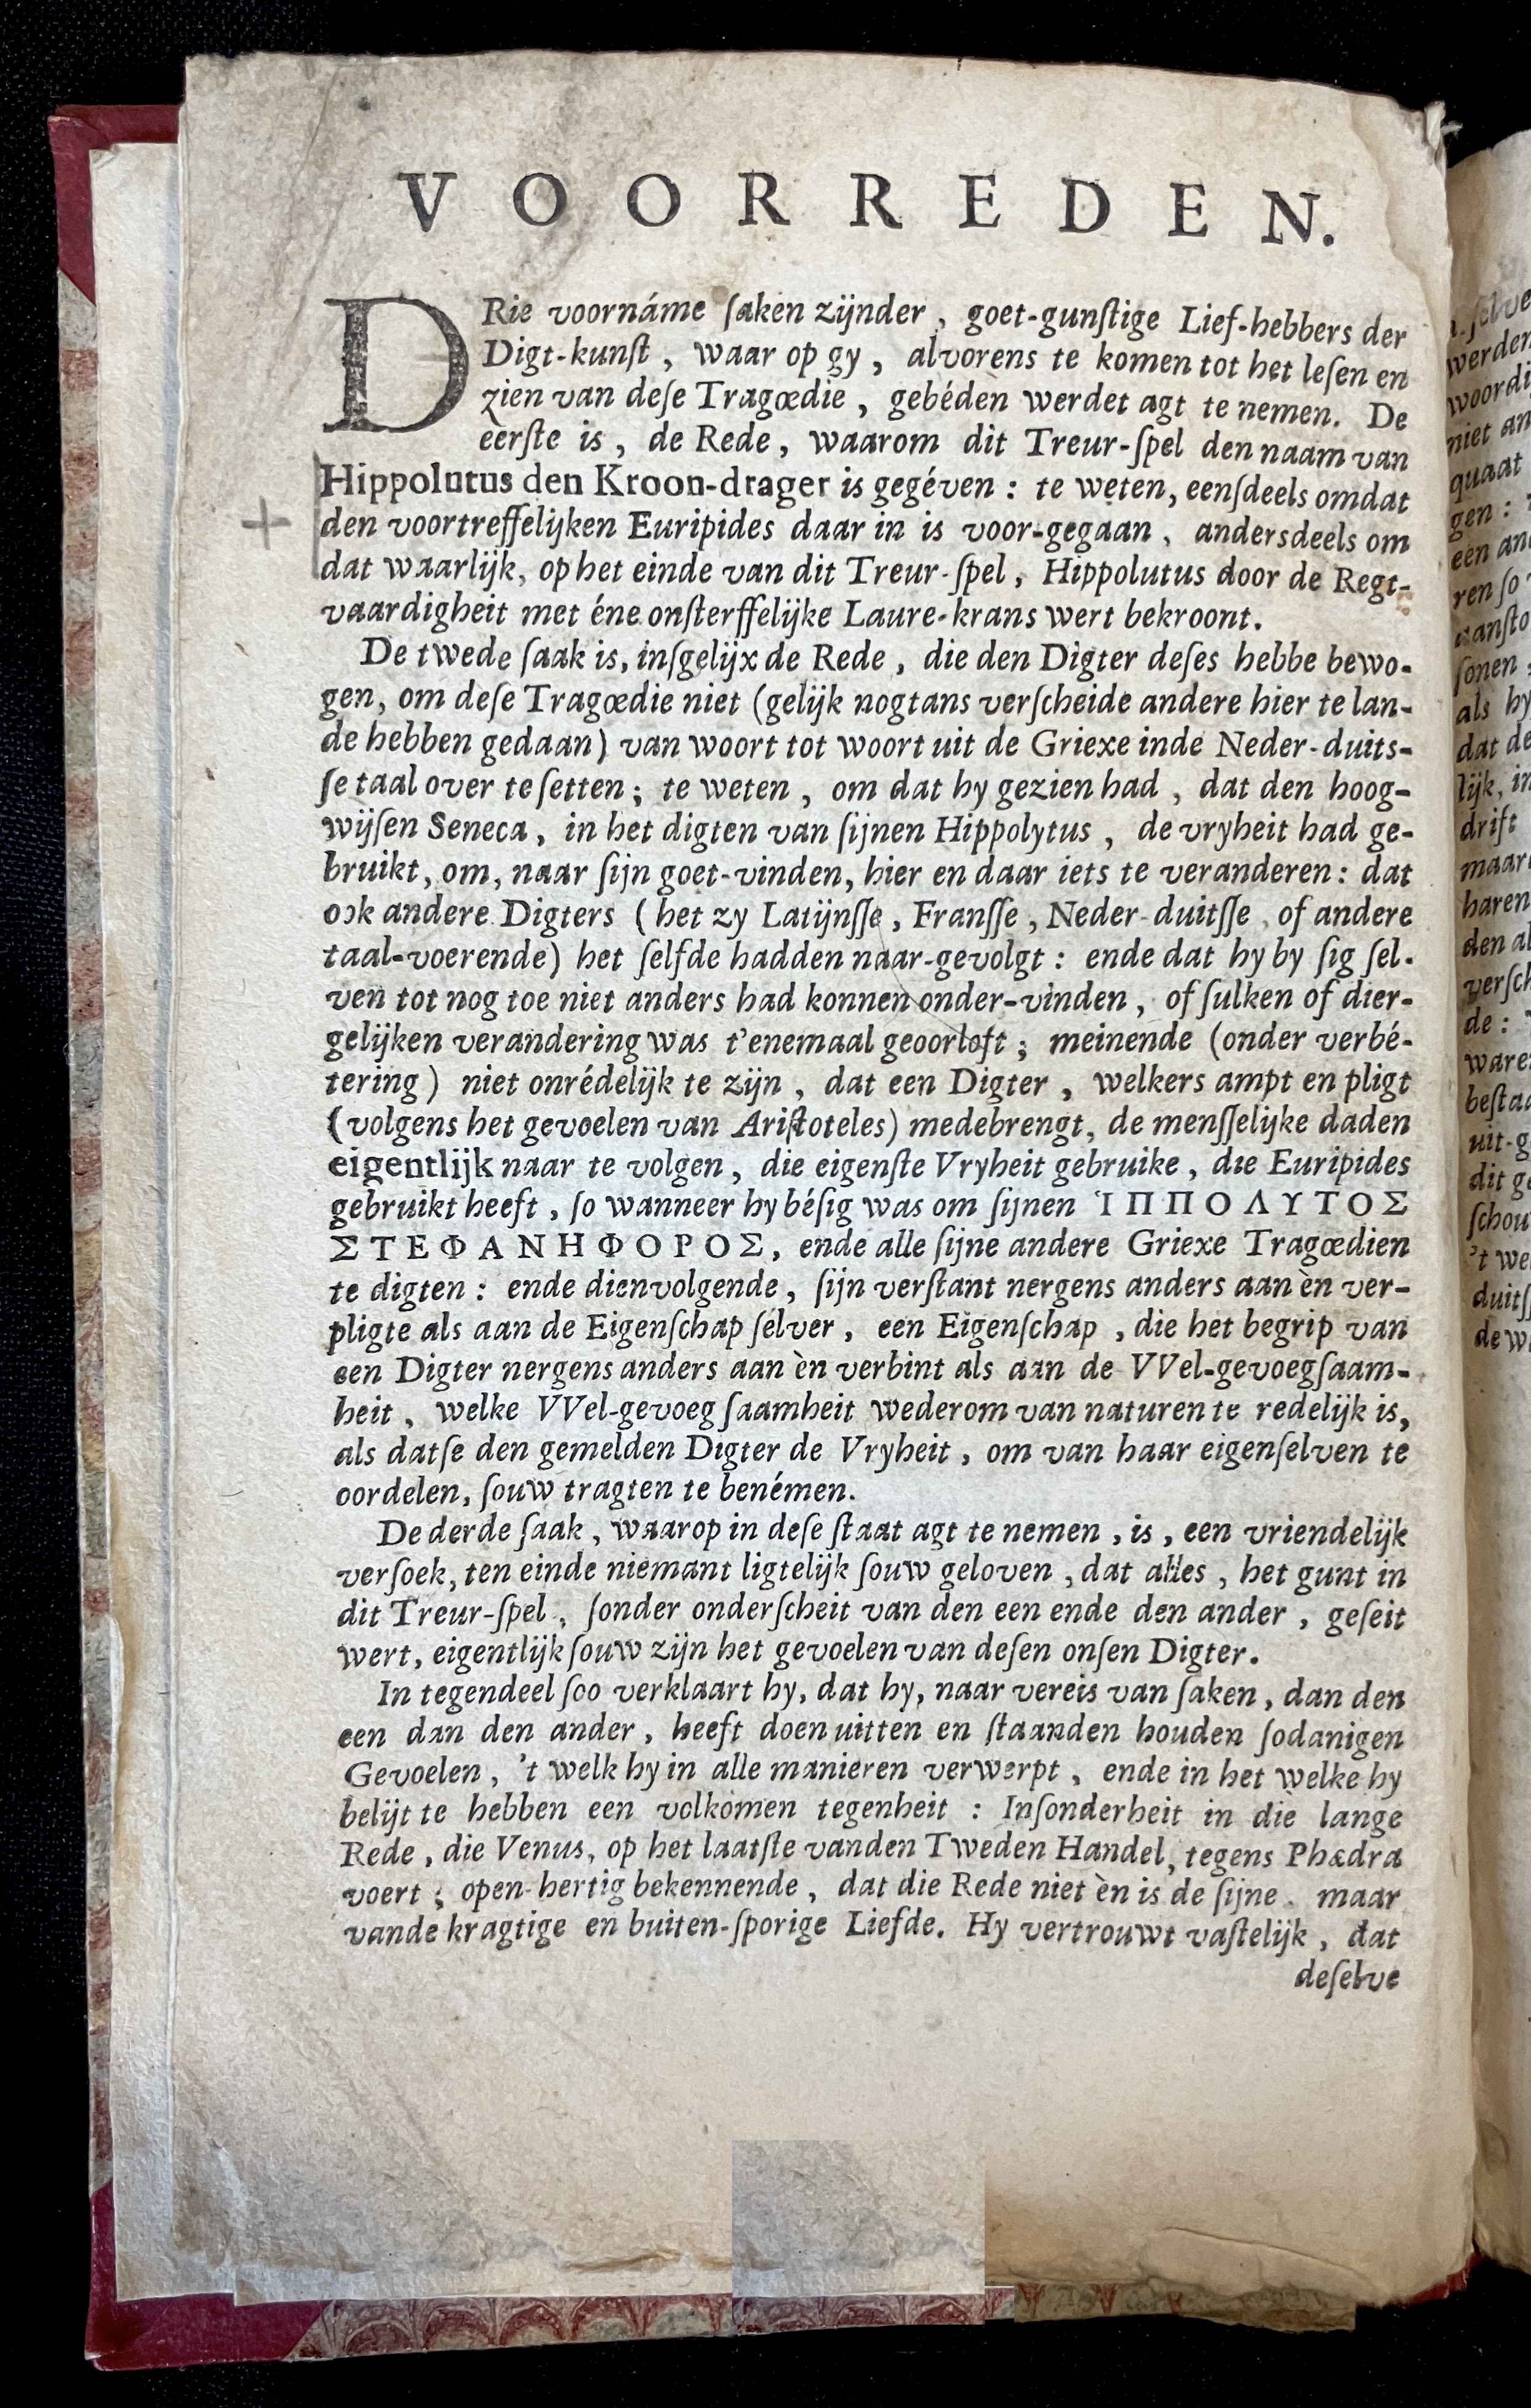 VOORREDEN.
DRie voornáme ſaken zijnder, goet-gunſtige Lief-hebbers der
Digt-kunſt, waar op gy, alvorens te komen tot het leſen en
zien van deſe Tragœdie, gebéden werdet agt te nemen. De
eerſte is, de Rede, waarom dit Treur-ſpel den naam van
Hippolutus den Kroon-drager is gegéven: te weten, eenſdeels omdat
den voortreffelijken Euripides daar in is voor-gegaan, andersdeels om
dat waarlijk, op het einde van dit Treur-ſpel, Hippolutus door de Regt-
vaardigheit met éne onſterffelijke Laure-krans wert bekroont.
De twede ſaak is, inſgelijx de Rede, die den Digter deſes hebbe bewo-
gen, om deſe Tragœdie niet (gelijk nogtans verſcheide andere hier te lan-
de hebben gedaan) van woort tot woort uit de Griexe inde Neder-duits-
ſe taal over te ſetten; te weten, om dat hy gezien had, dat den hoog-
wijſen Seneca, in het digten van ſijnen Hippolytus, de vryheit had ge-
bruikt, om, naar ſijn goet-vinden, hier en daar iets te veranderen: dat
ook andere Digters (het zy Latijnſſe, Franſſe, Neder-duitſſe, of andere
taal-voerende) het ſelfde hadden naar-gevolgt: ende dat hy by ſig ſel-
ven tot nog toe niet anders had konnen onder-vinden, of ſulken of dier-
gelijken verandering was t'enemaal geoorloft; meinende (onder verbé-
tering) niet onrédelijk te zijn, dat een Digter, welkers ampt en pligt
(volgens het gevoelen van Ariſtoteles) medebrengt, de menſſelijke daden
eigentlijk naar te volgen, die eigenſte Vryheit gebruike, die Euripides
gebruikt heeft, ſo wanneer hy béſig was om ſijnen ἹΠΠΟΛΥΤΟΣ
ΣΤΕΦΑΝΗΦΟΡΟΣ, ende alle ſijne andere Griexe Tragœdien
te digten: ende dienvolgende, ſijn verſtant nergens anders aan èn ver-
pligte als aan de Eigenſchap ſélver, een Eigenſchap, die het begrip van
een Digter nergens anders aan èn verbint als aan de VVel-gevoegſaam-
heit, welke VVel-gevoegſaamheit wederom van naturen te redelijk is,
als datſe den gemelden Digter de Vryheit, om van haar eigenſelven te
oordelen, ſouw tragten te benémen.
De derde ſaak, waarop in deſe ſtaat agt te nemen, is, een vriendelijk
verſoek, ten einde niemant ligtelijk ſouw geloven, dat alles, het gunt in
dit Treur-ſpel, ſonder onderſcheit van den een ende den ander, geſeit
wert, eigentlijk ſouw zijn het gevoelen van deſen onſen Digter.
In tegendeel ſoo verklaart hy, dat hy, naar vereis van ſaken, dan den
een dan den ander, heeft doen uitten en ſtaanden houden ſodanigen
Gevoelen, 't welk hy in alle manieren verwerpt, ende in het welke hy
belijt te hebben een volkomen tegenheit: Inſonderheit in die lange
Rede, die Venus, op het laatſte vanden Tweden Handel, tegens Phædra
voert; open-hertig bekennende, dat die Rede niet èn is de ſijne, maar
vande kragtige en buiten-ſporige Liefde. Hy vertrouwt vaſtelijk, dat
deſelve